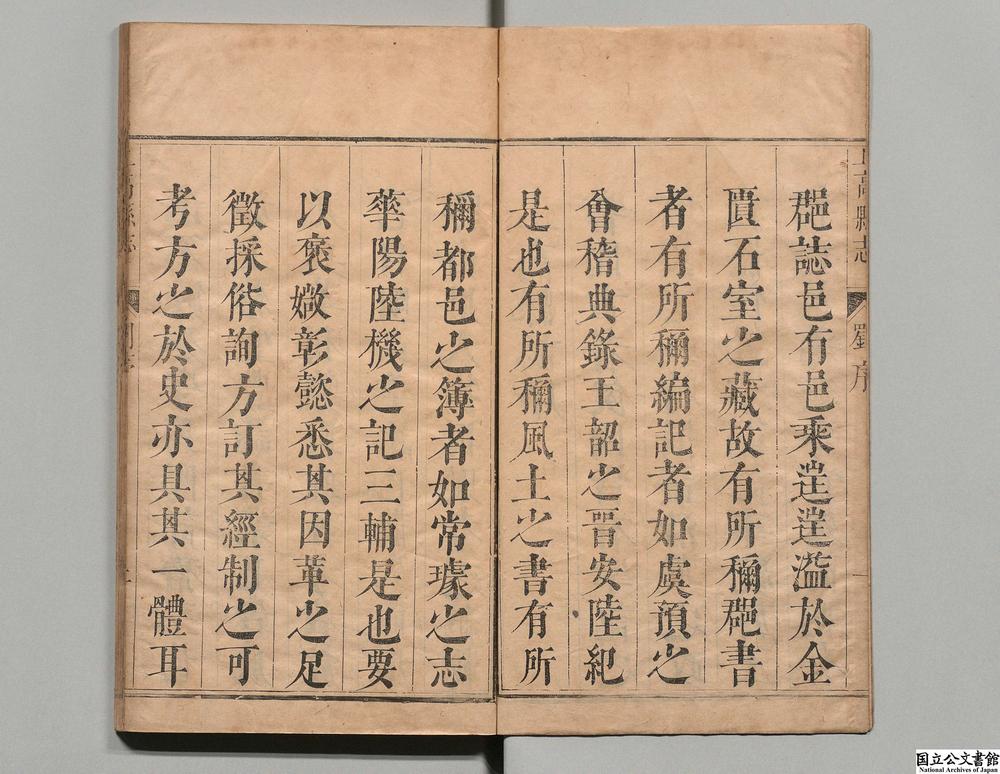 上高縣志
劉序
郡誌邑有邑乘遑遑溢於金
匱石室之藏故有所稱郡書
者有所稱編記者如虞預之
會稽典錄王韶之晉安陸紀
是也有所稱風土之書有所
稱都邑之簿者如常璩之志
華陽陸機之記三輔是也要
以褒媺彰懿悉其因革之足
徵採俗詢方訂其經制之可
考方之於史亦具其一體耳
国立公文書館
National Archives of Japan